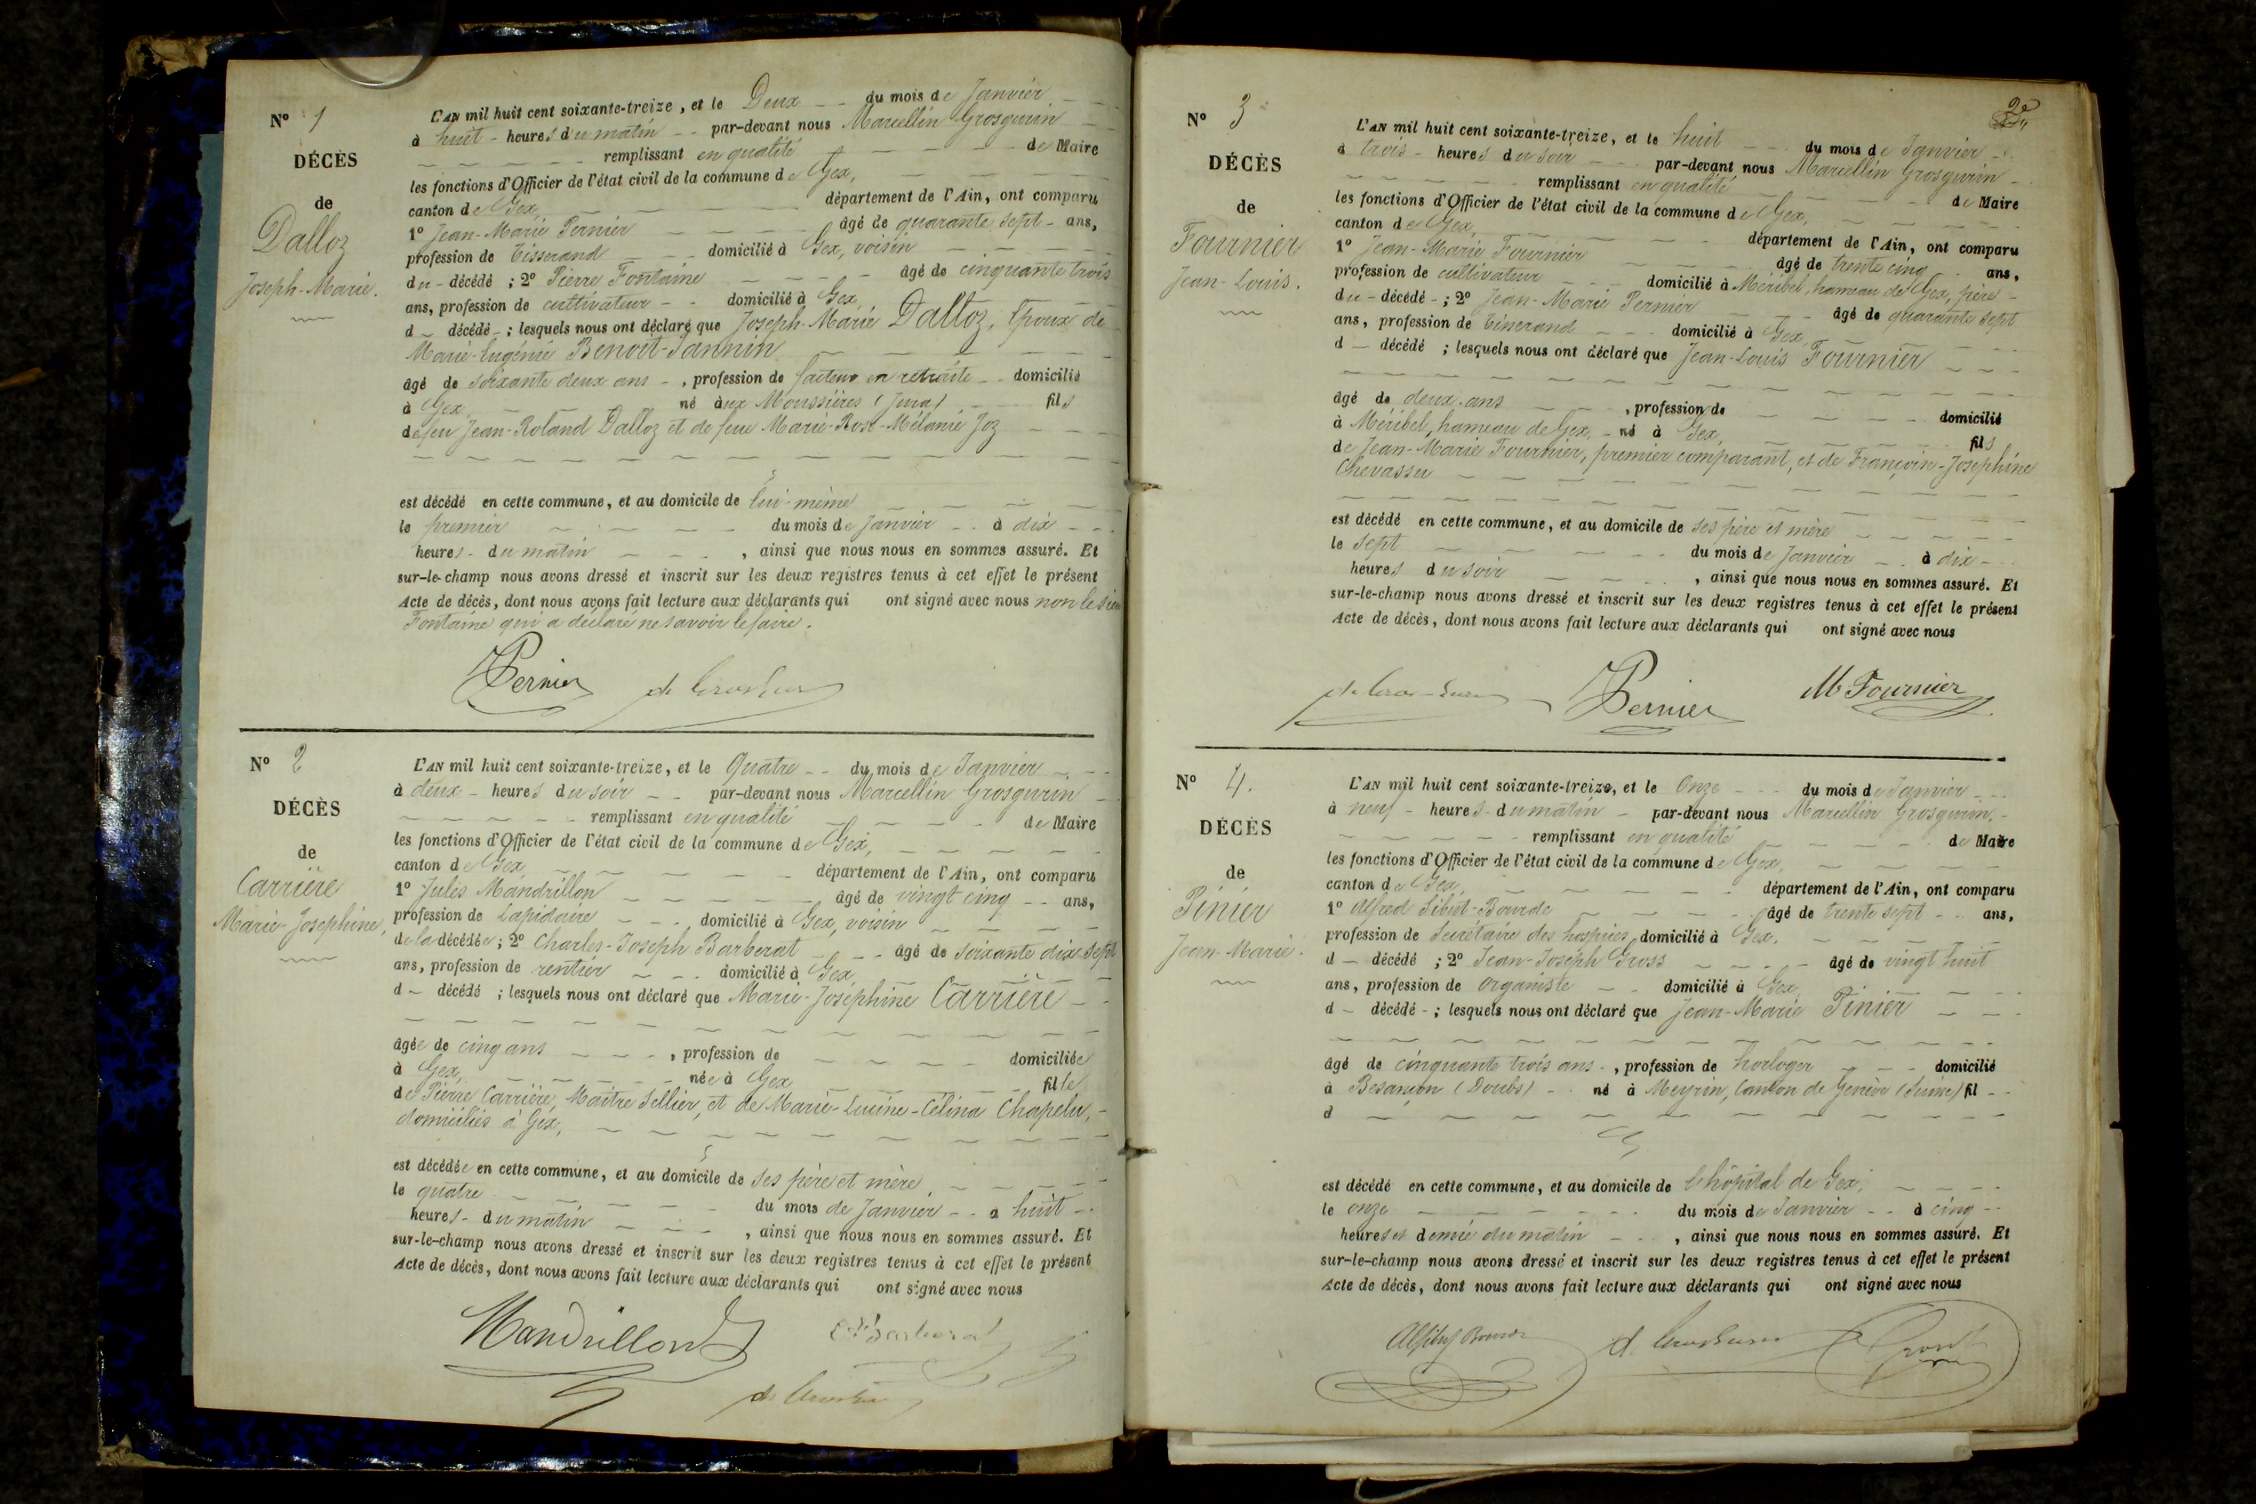 Nº 1
DÉCÈS
de
Dalloz
Joseph-Marie.
L'AN mil huit cent soixante-treize, et le Deux du mois de Janvier
à huit heures du matin par-devant nous Marcellin Grosgurin
remplissant en qualité de Maire
les fonctions d'Officier de l'état civil de la commune de Gex,
canton de Gex, département de l'Ain, ont comparu
1º Jean-Marie Pernier âgé de quarante sept ans,
profession de Tisserand domicilié à Gex, voisin
du décédé ; 2º Pierre Fontaine âgé de cinquante trois
ans, profession de cultivateur domicilié à Gex,
d décédé ; lesquels nous ont déclaré que Joseph-Marie Dalloz, Epoux de
Marie-Eugénie Benoit-Jannin
âgé de soixante deux ans , profession de facteur en retraite domicilié
à Gex, né aux Moussières (Jura) fils
de feu Jean-Roland Dalloz et de feue Marie-Rose-Mélanie Joz
est décédé en cette commune, et au domicile de lui-même
le premier du mois de Janvier à dix
heures du matin , ainsi que nous nous en sommes assuré. Et
sur-le-champ nous avons dressé et inscrit sur les deux registres tenus à cet effet le présent
Acte de décès, dont nous avons fait lecture aux déclarants qui ont signé avec nous non le sieur
Fontaine qui a déclaré ne savoir le faire.
Pernier
Nº 2
DÉCÈS
de
Carrière
Marie-Josephine,
L'AN mil huit cent soixante-treize, et le Quatre du mois de Janvier
à deux heures du soir par-devant nous Marcellin Grosgurin
remplissant en qualité de Maire
les fonctions d'Officier de l'état civil de la commune de Gex,
canton de Gex, département de l'Ain, ont comparu
1º Jules Mandrillon âgé de vingt cinq ans,
profession de Lapidaire domicilié à Gex, voisin
de la décédée ; 2º Charles-Joseph Barberat âgé de soixante dix-sept
ans, profession de rentier domicilié à Gex,
d décédé ; lesquels nous ont déclaré que Marie-Joséphine Carrière
âgée de cinq ans , profession de domiciliée
à Gex, née à Gex fille
de Pierre Carrière, Maître Sellier, et de Marie-Lucine-Célina Chapelu,
domiciliés à Gex,
est décédée en cette commune, et au domicile de ses père et mère,
le quatre du mois de Janvier à huit
heures du matin , ainsi que nous nous en sommes assuré. Et
sur-le-champ nous avons dressé et inscrit sur les deux registres tenus à cet effet le présent
Acte de décès, dont nous avons fait lecture aux déclarants qui ont signé avec nous
Mandrillon
Barberat
Nº 3
DÉCÈS
de
Fournier
Jean-Louis.
L'AN mil huit cent soixante-treize, et le huit du mois de Janvier
à trois heures du soir par-devant nous Marcellin Grosgurin
remplissant en qualité de Maire
les fonctions d'Officier de l'état civil de la commune de Gex,
canton de Gex, département de l'Ain, ont comparu
1º Jean-Marie Fournier âgé de trente cinq ans,
profession de cultivateur domicilié à Méribel, hameau de Gex, père
du décédé ; 2º Jean-Marie Pernier âgé de quarante sept
ans, profession de Tisserand domicilié à Gex,
d décédé ; lesquels nous ont déclaré que Jean-Louis Fournier
âgé de deux ans , profession de domicilié
à Méribel, hameau de Gex, né à Gex, fils
de Jean-Marie Fournier, premier comparant, et de Françoise-Joséphine
Chevassu
est décédé en cette commune, et au domicile de ses père et mère
le sept du mois de Janvier à dix
heures du soir , ainsi que nous nous en sommes assuré. Et
sur-le-champ nous avons dressé et inscrit sur les deux registres tenus à cet effet le présent
Acte de décès, dont nous avons fait lecture aux déclarants qui ont signé avec nous
Pernier M Fournier
Nº 4.
DÉCÈS
de
Pinier
Jean-Marie.
L'AN mil huit cent soixante-treize, et le Onze du mois de Janvier
à neuf heures du matin par-devant nous Marcellin Grosgurin,
remplissant en qualité de Maire
les fonctions d'Officier de l'état civil de la commune de Gex,
canton de Gex, département de l'Ain, ont comparu
1º Alfred Sibut-Bourde âgé de trente sept ans,
profession de Secrétaire des hospices domicilié à Gex.
d décédé ; 2º Jean-Joseph Gross âgé de vingt huit
ans, profession de organiste domicilié à Gex,
d décédé ; lesquels nous ont déclaré que Jean-Marie Pinier
âgé de cinquante trois ans , profession de horloger domicilié
à Besançon (Doubs) né à Meyrin, Canton de Genève (Suisse) fil
d
est décédé en cette commune, et au domicile de l'hôpital de Gex,
le onze du mois de Janvier à cinq
heures et demie du matin , ainsi que nous nous en sommes assuré. Et
sur-le-champ nous avons dressé et inscrit sur les deux registres tenus à cet effet le présent
Acte de décès, dont nous avons fait lecture aux déclarants qui ont signé avec nous